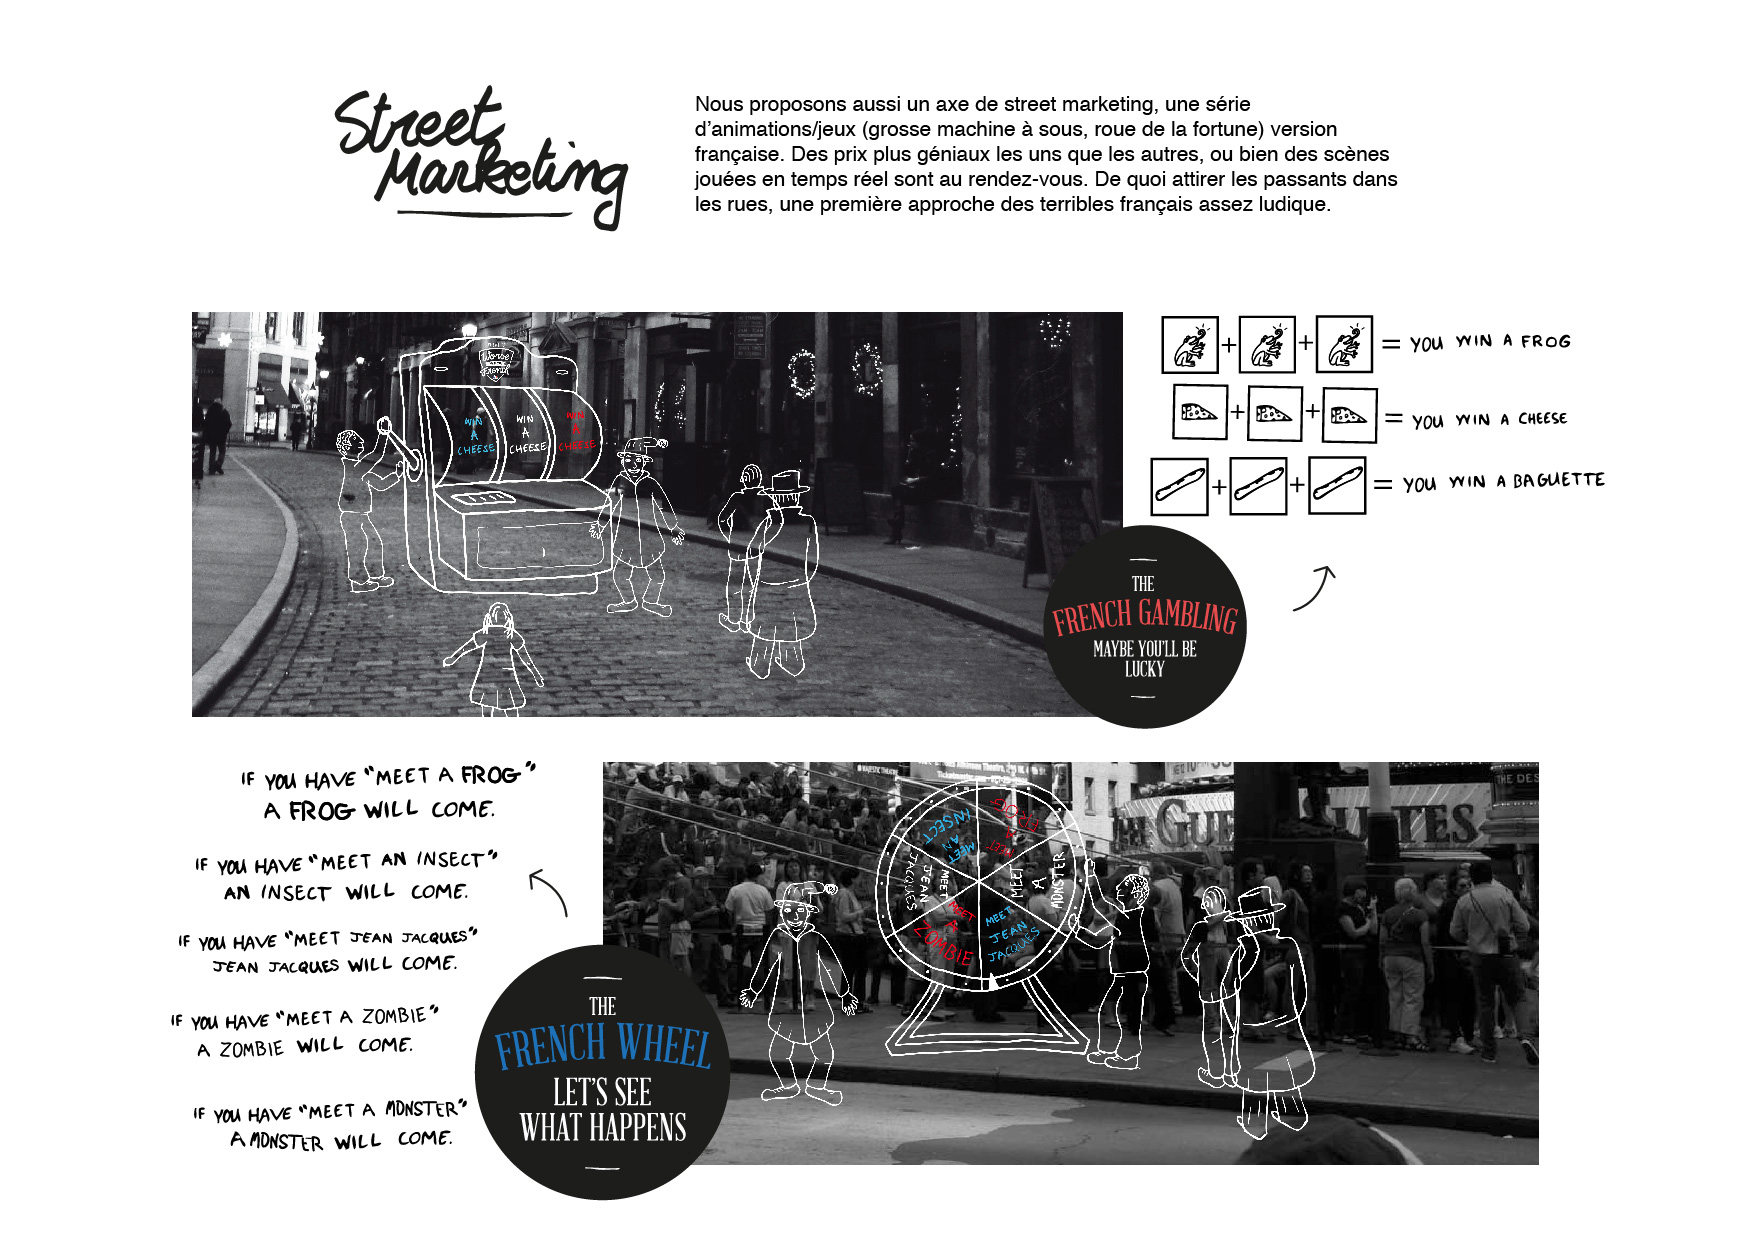 Street
Marketing
Nous proposons aussi un axe de street marketing, une série
d'animations/jeux (grosse machine à sous, roue de la fortune) version
française. Des prix plus géniaux les uns que les autres, ou bien des scènes
jouées en temps réel sont au rendez-vous. De quoi attirer les passants dans
les rues, une première approche des terribles français assez ludique.
Worse
French
WIN
A
CHEESE
WIN
A
CHEESE
WIN
A
CHEESE
+ + = YOU WIN A FROG
+ + = YOU WIN A CHEESE
+ + = YOU WIN A BAGUETTE
THE
FRENCH GAMBLING
MAYBE YOU'LL BE
LUCKY
IF YOU HAVE "MEET A FROG"
A FROG WILL COME.
IF YOU HAVE "MEET AN INSECT"
AN INSECT WILL COME.
IF YOU HAVE "MEET JEAN JACQUES"
JEAN JACQUES WILL COME.
IF YOU HAVE "MEET A ZOMBIE"
A ZOMBIE WILL COME.
IF YOU HAVE "MEET A MONSTER"
A MONSTER WILL COME.
THE
FRENCH WHEEL
LET'S SEE
WHAT HAPPENS
MAJESTIC THEATRE
MEET
AN
INSECT
MEET
A
MONSTER
MEET
JEAN
JACQUES
MEET
A
ZOMBIE
MEET
JEAN
JACQUES
THE DES